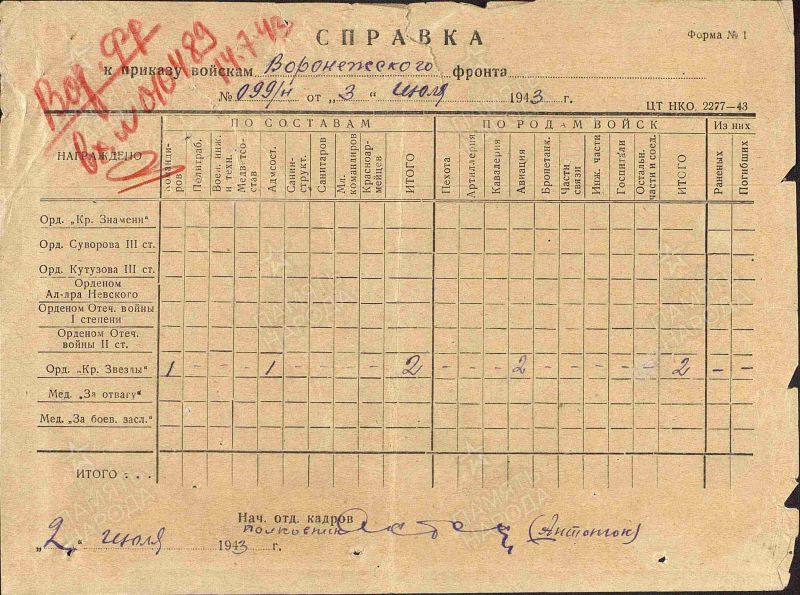 Вор. Фр.
14.7.43
СПРАВКА
Форма № 1
к приказу войскам Воронежского фронта
№ 099/н от „3“ июля 1943 г.
ЦТ НКО. 2277–43
НАГРАЖДЕНО
ПО СОСТАВАМ
ПО РОДАМ ВОЙСК
Из них
Командиров
Политраб.
Воен. инж. и техн.
Медветсостав
Адмсост.
Санинструкт.
Санитаров
Мл. командиров
Красноармейцев
ИТОГО
Пехота
Артиллерия
Кавалерия
Авиация
Бронетанк.
Части связи
Инж. части
Госпитали
Остальн. части и соед.
ИТОГО
Раненых
Погибших
Орд. „Кр. Знамени“
Орд. Суворова III ст.
Орд. Кутузова III ст.
Орденом
Ал-дра Невского
Орденом Отеч. войны
I степени
Орденом Отеч.
войны II ст.
Орд. „Кр. Звезды“ 1 – – – 1 – – – – 2 – – – 2 – – – – – 2 – –
Мед. „За отвагу“
Мед. „За боев. засл.“
ИТОГО . . .
Нач. отд. кадров
полковник (Антонюк)
„2“ июля 1943 г.
ПАМЯТЬ НАРОДА